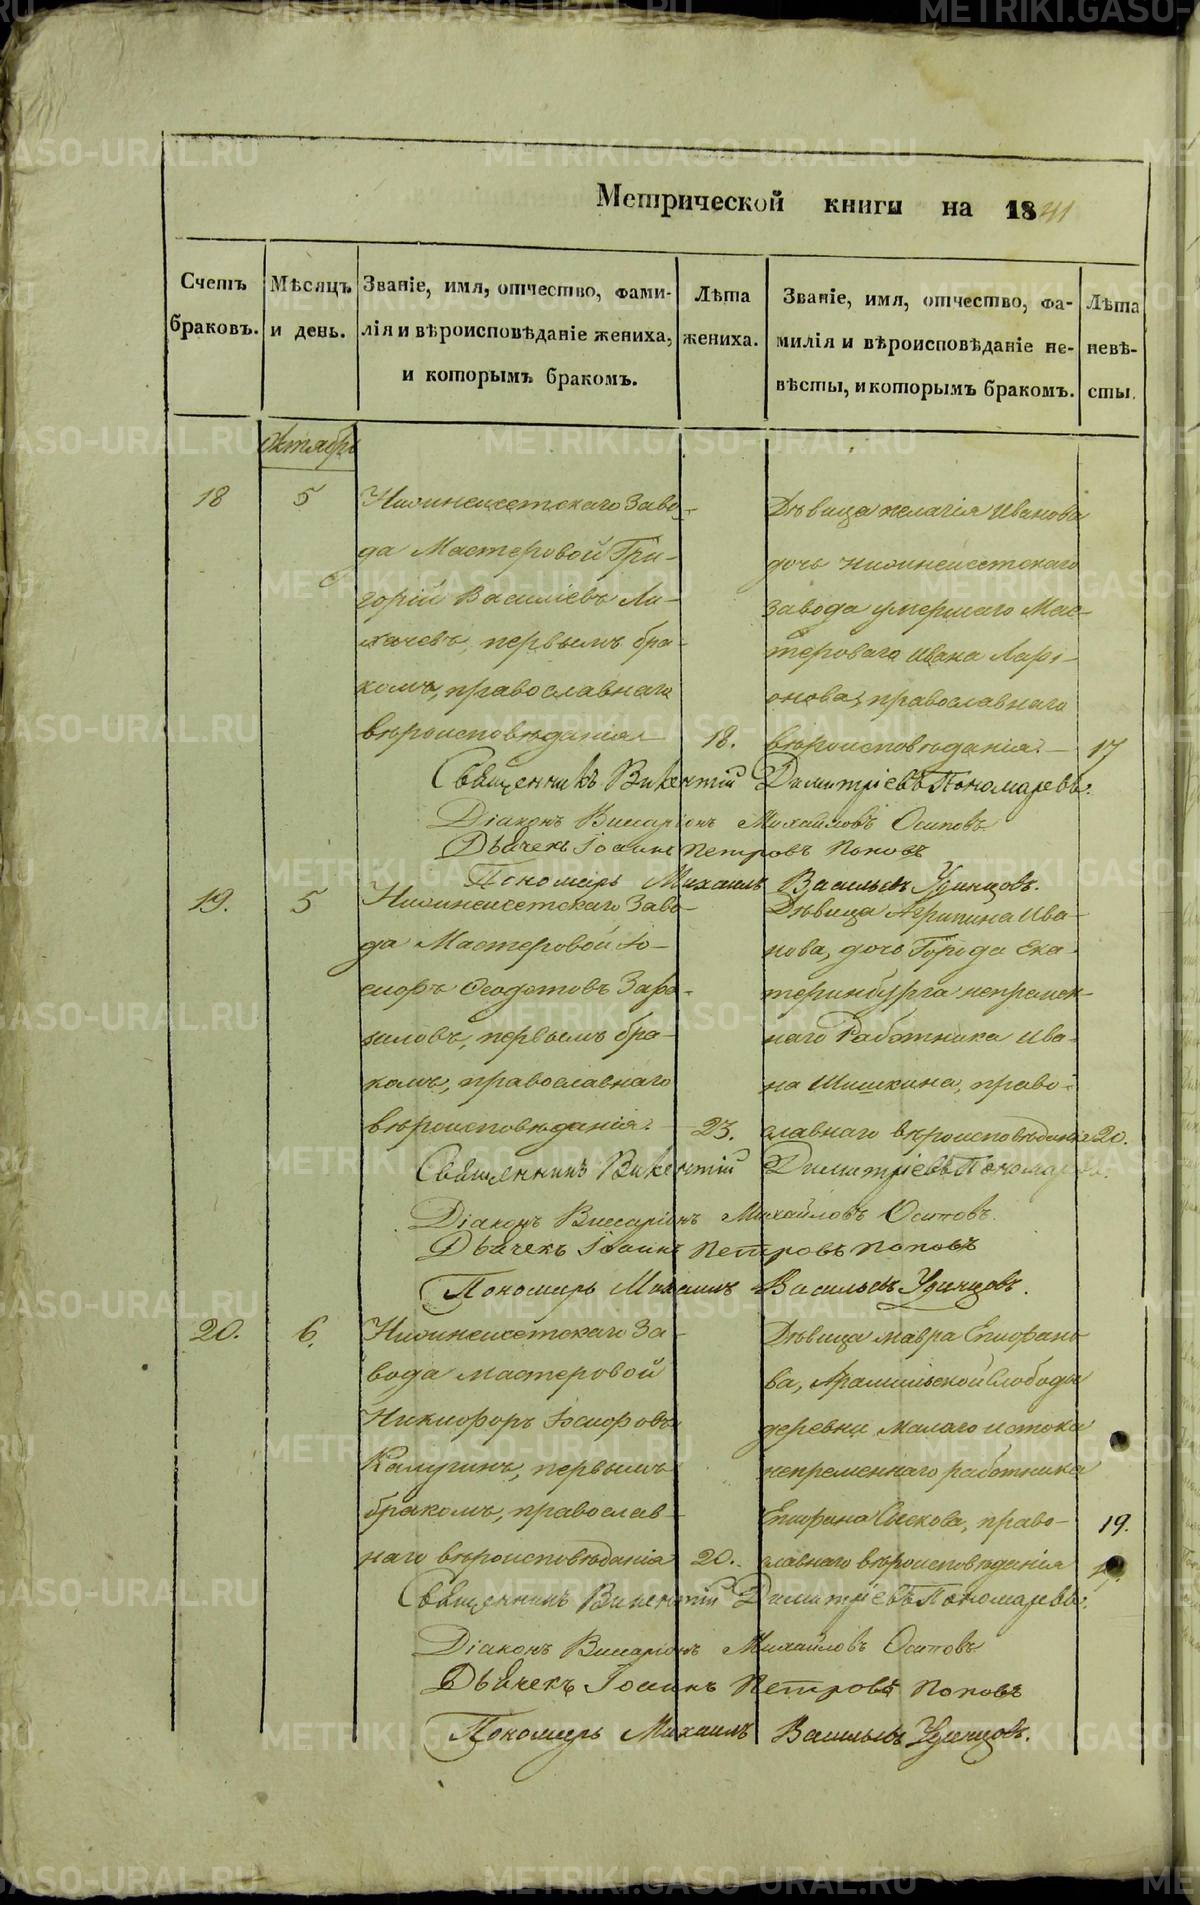 Метрической книги на 1841
Счетъ браковъ.
Мѣсяцъ и день.
Званіе, имя, отчество, фами-
лія и вѣроисповѣданіе жениха,
и которымъ бракомъ.
Лѣта жениха.
Званіе, имя, отчество, фа-
милія и вѣроисповѣданіе не-
вѣсты, и которымъ бракомъ.
Лѣта невѣ-
сты.
Октябрь
18
5
Нижнеисетскаго Заво-
да Мастеровой Гри-
горій Василіевъ Ли-
хачевъ, первымъ бра-
комъ, православнаго
вѣроисповѣданія
18.
Дѣвица Пелагія Иванова
дочь Нижнеисетскаго
завода умершаго Мас-
тероваго Ивана Ларі-
онова, православнаго
вѣроисповѣданія.
17
Священникъ Викентій Димитріевъ Пономаревъ.
Діаконъ Виссаріонъ Михайловъ Осиповъ
Дьячекъ Іоаннъ Петровъ Поповъ
Пономарь Михаилъ Васильевъ Удинцовъ.
19.
5
Нижнеисетскаго Заво-
да Мастеровой Іо-
сифъ Феодотовъ
первымъ бра-
комъ, православнаго
вѣроисповѣданія.
23.
Дѣвица Агрипина Ива-
нова, дочь Города Ека-
теринбурга непремен-
наго Работника Ива-
на Шишкина, право-
славнаго вѣроисповѣданія
20.
Священникъ Викентій Димитріевъ Пономаревъ.
Діаконъ Виссаріонъ Михайловъ Осиповъ.
Дьячекъ Іоаннъ Петровъ Поповъ
Пономарь Михаилъ Васильевъ Удинцовъ.
20.
6.
Нижнеисетскаго За-
вода мастеровой
Никифоръ Іосифовъ
Калугинъ, первымъ
бракомъ, православ-
наго вѣроисповѣданія
20.
Дѣвица Мавра Епифано-
ва, Арамильской Слободы
деревни Малаго истока
непременнаго работника
право-
славнаго вѣроисповѣданія
19.
Священникъ Викентій Димитріевъ Пономаревъ.
Діаконъ Виссаріонъ Михайловъ Осиповъ
Дьячекъ Іоаннъ Петровъ Поповъ
Пономарь Михаилъ Васильевъ Удинцовъ.
METRIKI.GASO-URAL.RU